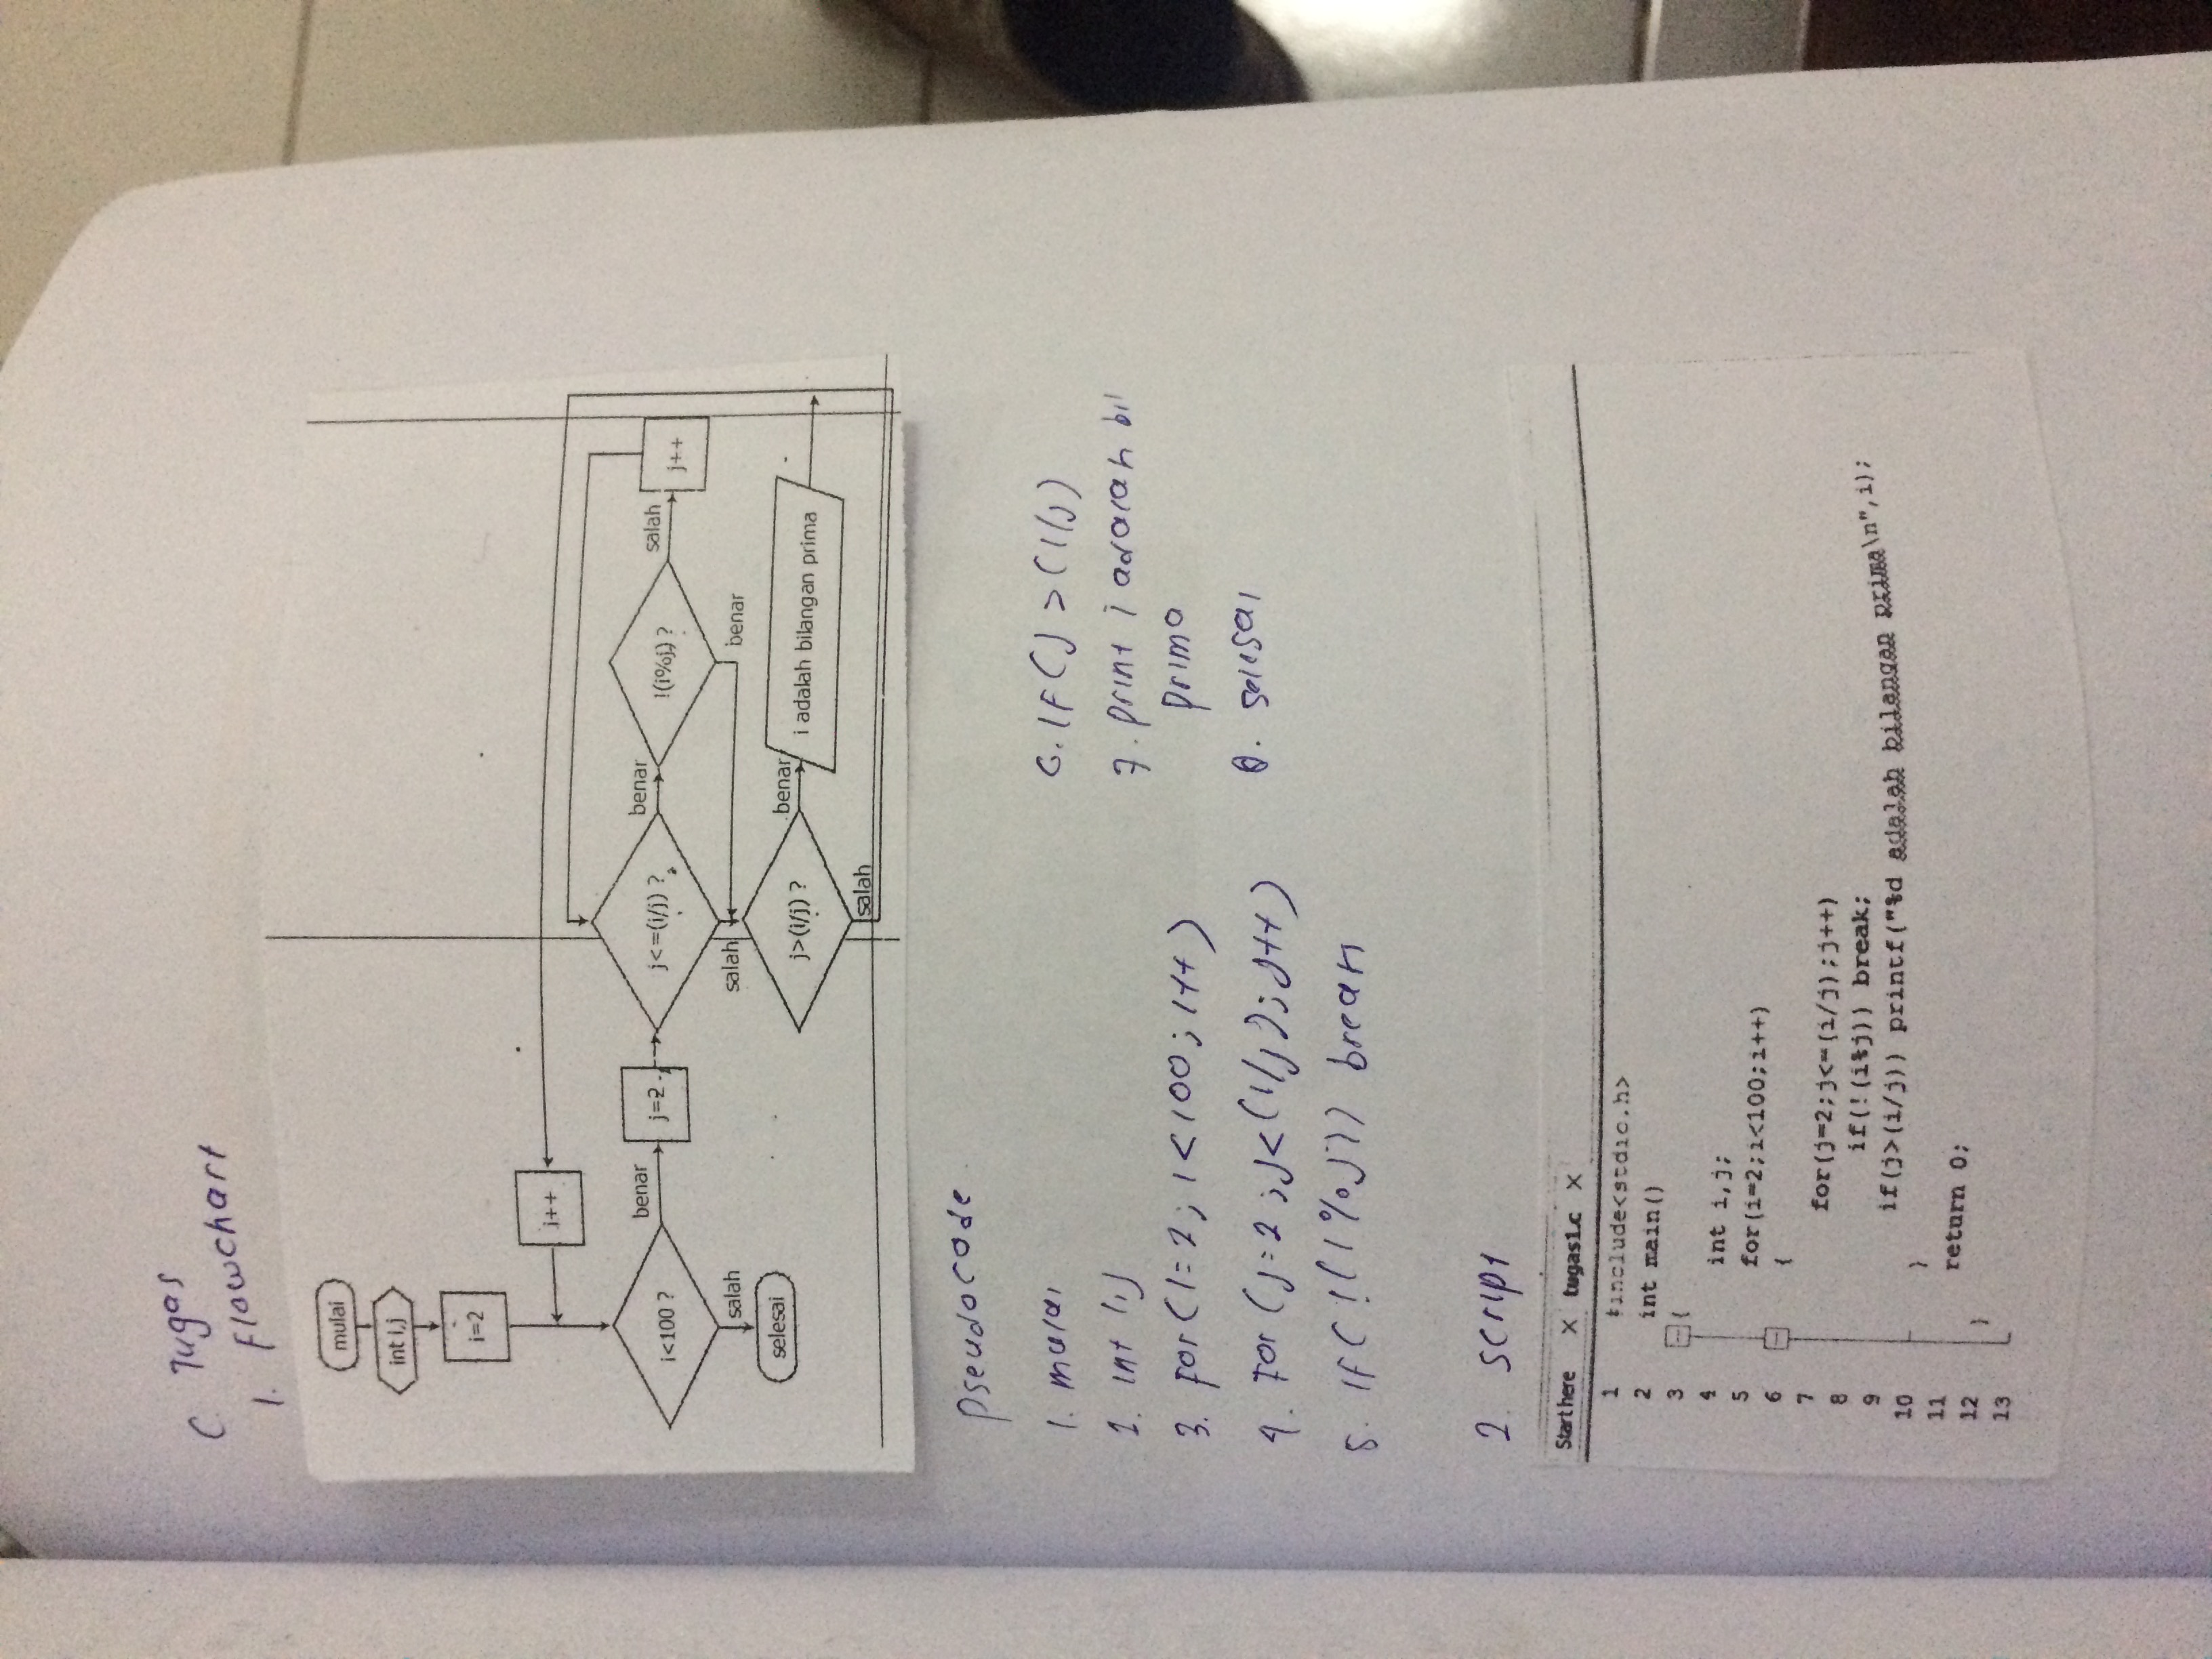 C. Tugas
1. Flowchart
mulai
int i,j
i=2
i++
i<100 ?
benar
j=2
j<=(i/j) ?
benar
!(i%j) ?
salah
j++
salah
selesai
salah
benar
j>(i/j) ?
benar
i adalah bilangan prima
salah
pseudocode
1. mulai
2. int i,j
3. for (i=2; i<100; i++)
4. For (j=2; j<(i/j); j++)
5. If (!(i%j)) break
6. If (j > (i/j)
7. print i adalah bil
prima
8. selesai
2. script
Start here X tugas1.c X
1 #include<stdio.h>
2 int main()
3 {
4 int i,j;
5 for(i=2;i<100;i++)
6 {
7 for(j=2;j<=(i/j);j++)
8 if(!(i%j)) break;
9 if(j>(i/j)) printf("%d adalah bilangan prima\n",i);
10 }
11 return 0;
12 }
13